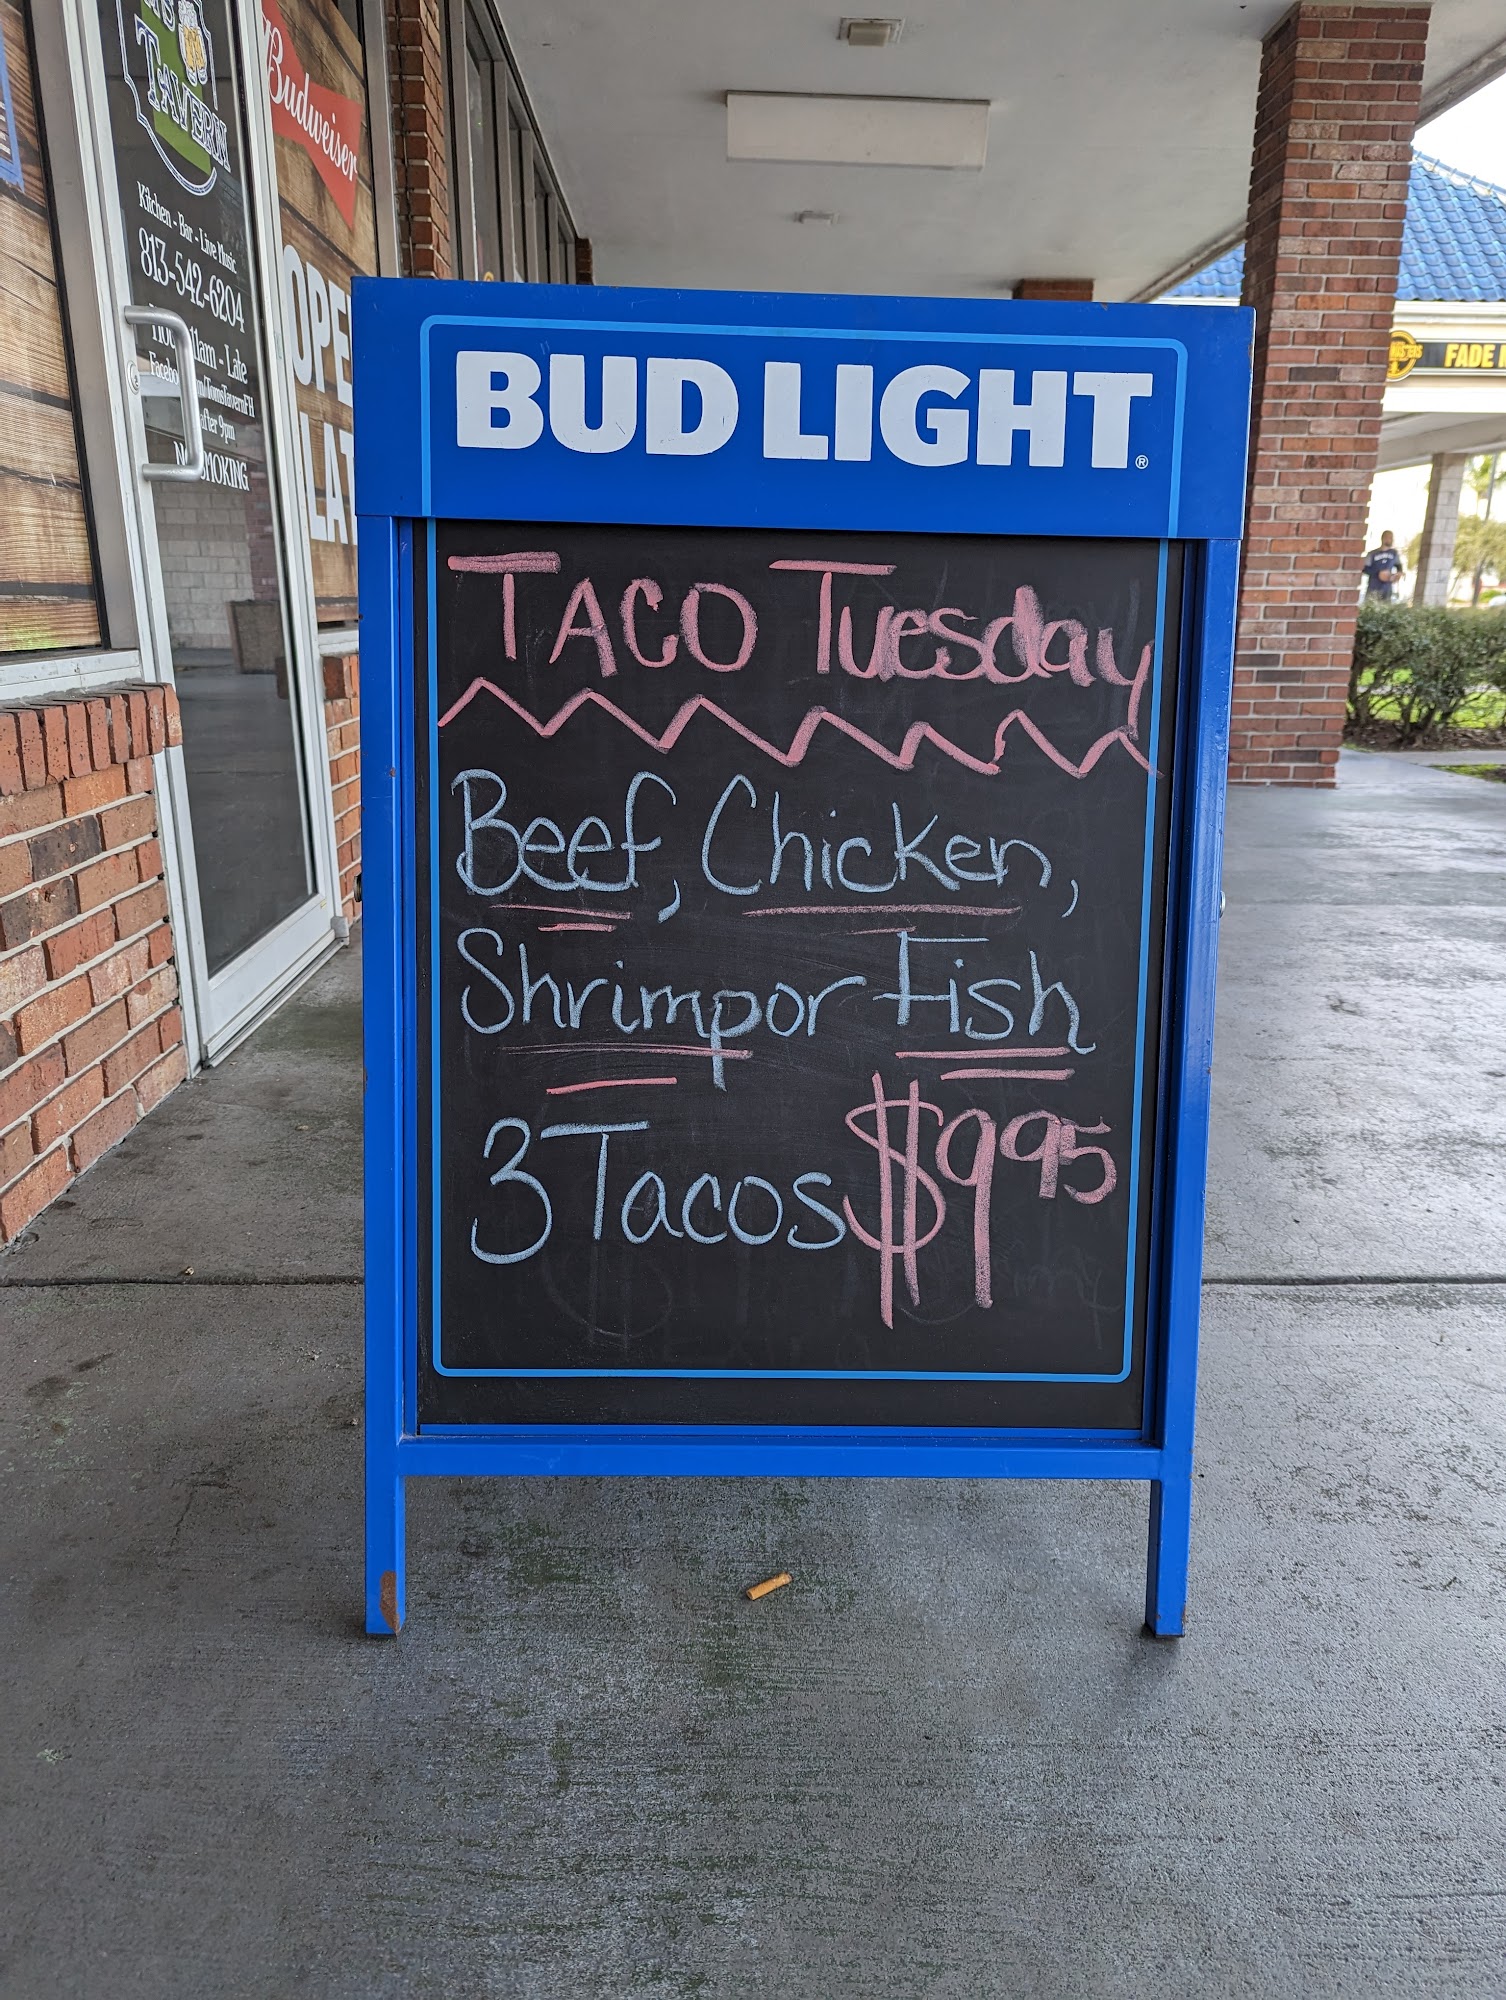 TAVERN
Kitchen - Bar - Live Music
813-542-6204
11am - Late
after 9pm
Budweiser
OPE
LAT
BUD LIGHT®
TACO Tuesday
Beef, Chicken,
Shrimp or Fish
3 Tacos $9 95
FADE